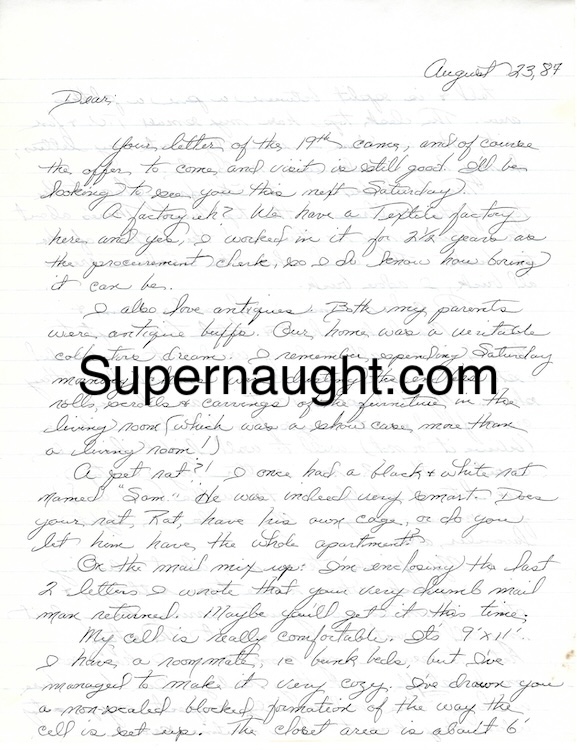 August 23, 87
Dear,
Your letter of the 19th came, and of course
the offer to come and visit is still good. I'll be
looking to see you this next Saturday.
A factory eh? We have a Textile factory
here and yes, I worked in it for 2½ years as
the procurement clerk, so I do know how boring
it can be.
I also love antiques. Both my parents
were antique buffs. Our home was a veritable
collectors dream. I remember spending Saturday
Supernaught.com
rolls, scrolls & carvings of the furniture in the
living room (which was a show case more than
a living room!)
A pet rat?! I once had a black & white rat
named "Sam." He was indeed very smart. Does
your rat, Rat, have his own cage, or do you
let him have the whole apartment?
On the mail mix up: I'm enclosing the last
2 letters I wrote that your very dumb mail
man returned. Maybe you'll get it this time.
My cell is really comfortable. It's 9'x11'.
I have a roommate, ie bunk beds, but I've
managed to make it very cozy. I've drawn you
a non-scaled blocked formation of the way the
cell is set up. The closet area is about 6'